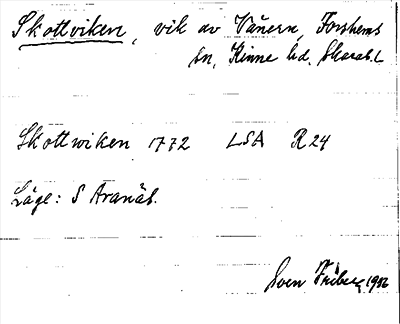 Skottviken, vik av Vänern, Forshems
sn, Kinne hd. Skarab. l.
Skottwiken 1772 LSA R24
Läge: S Aranäs.
Sven Friberg 1926